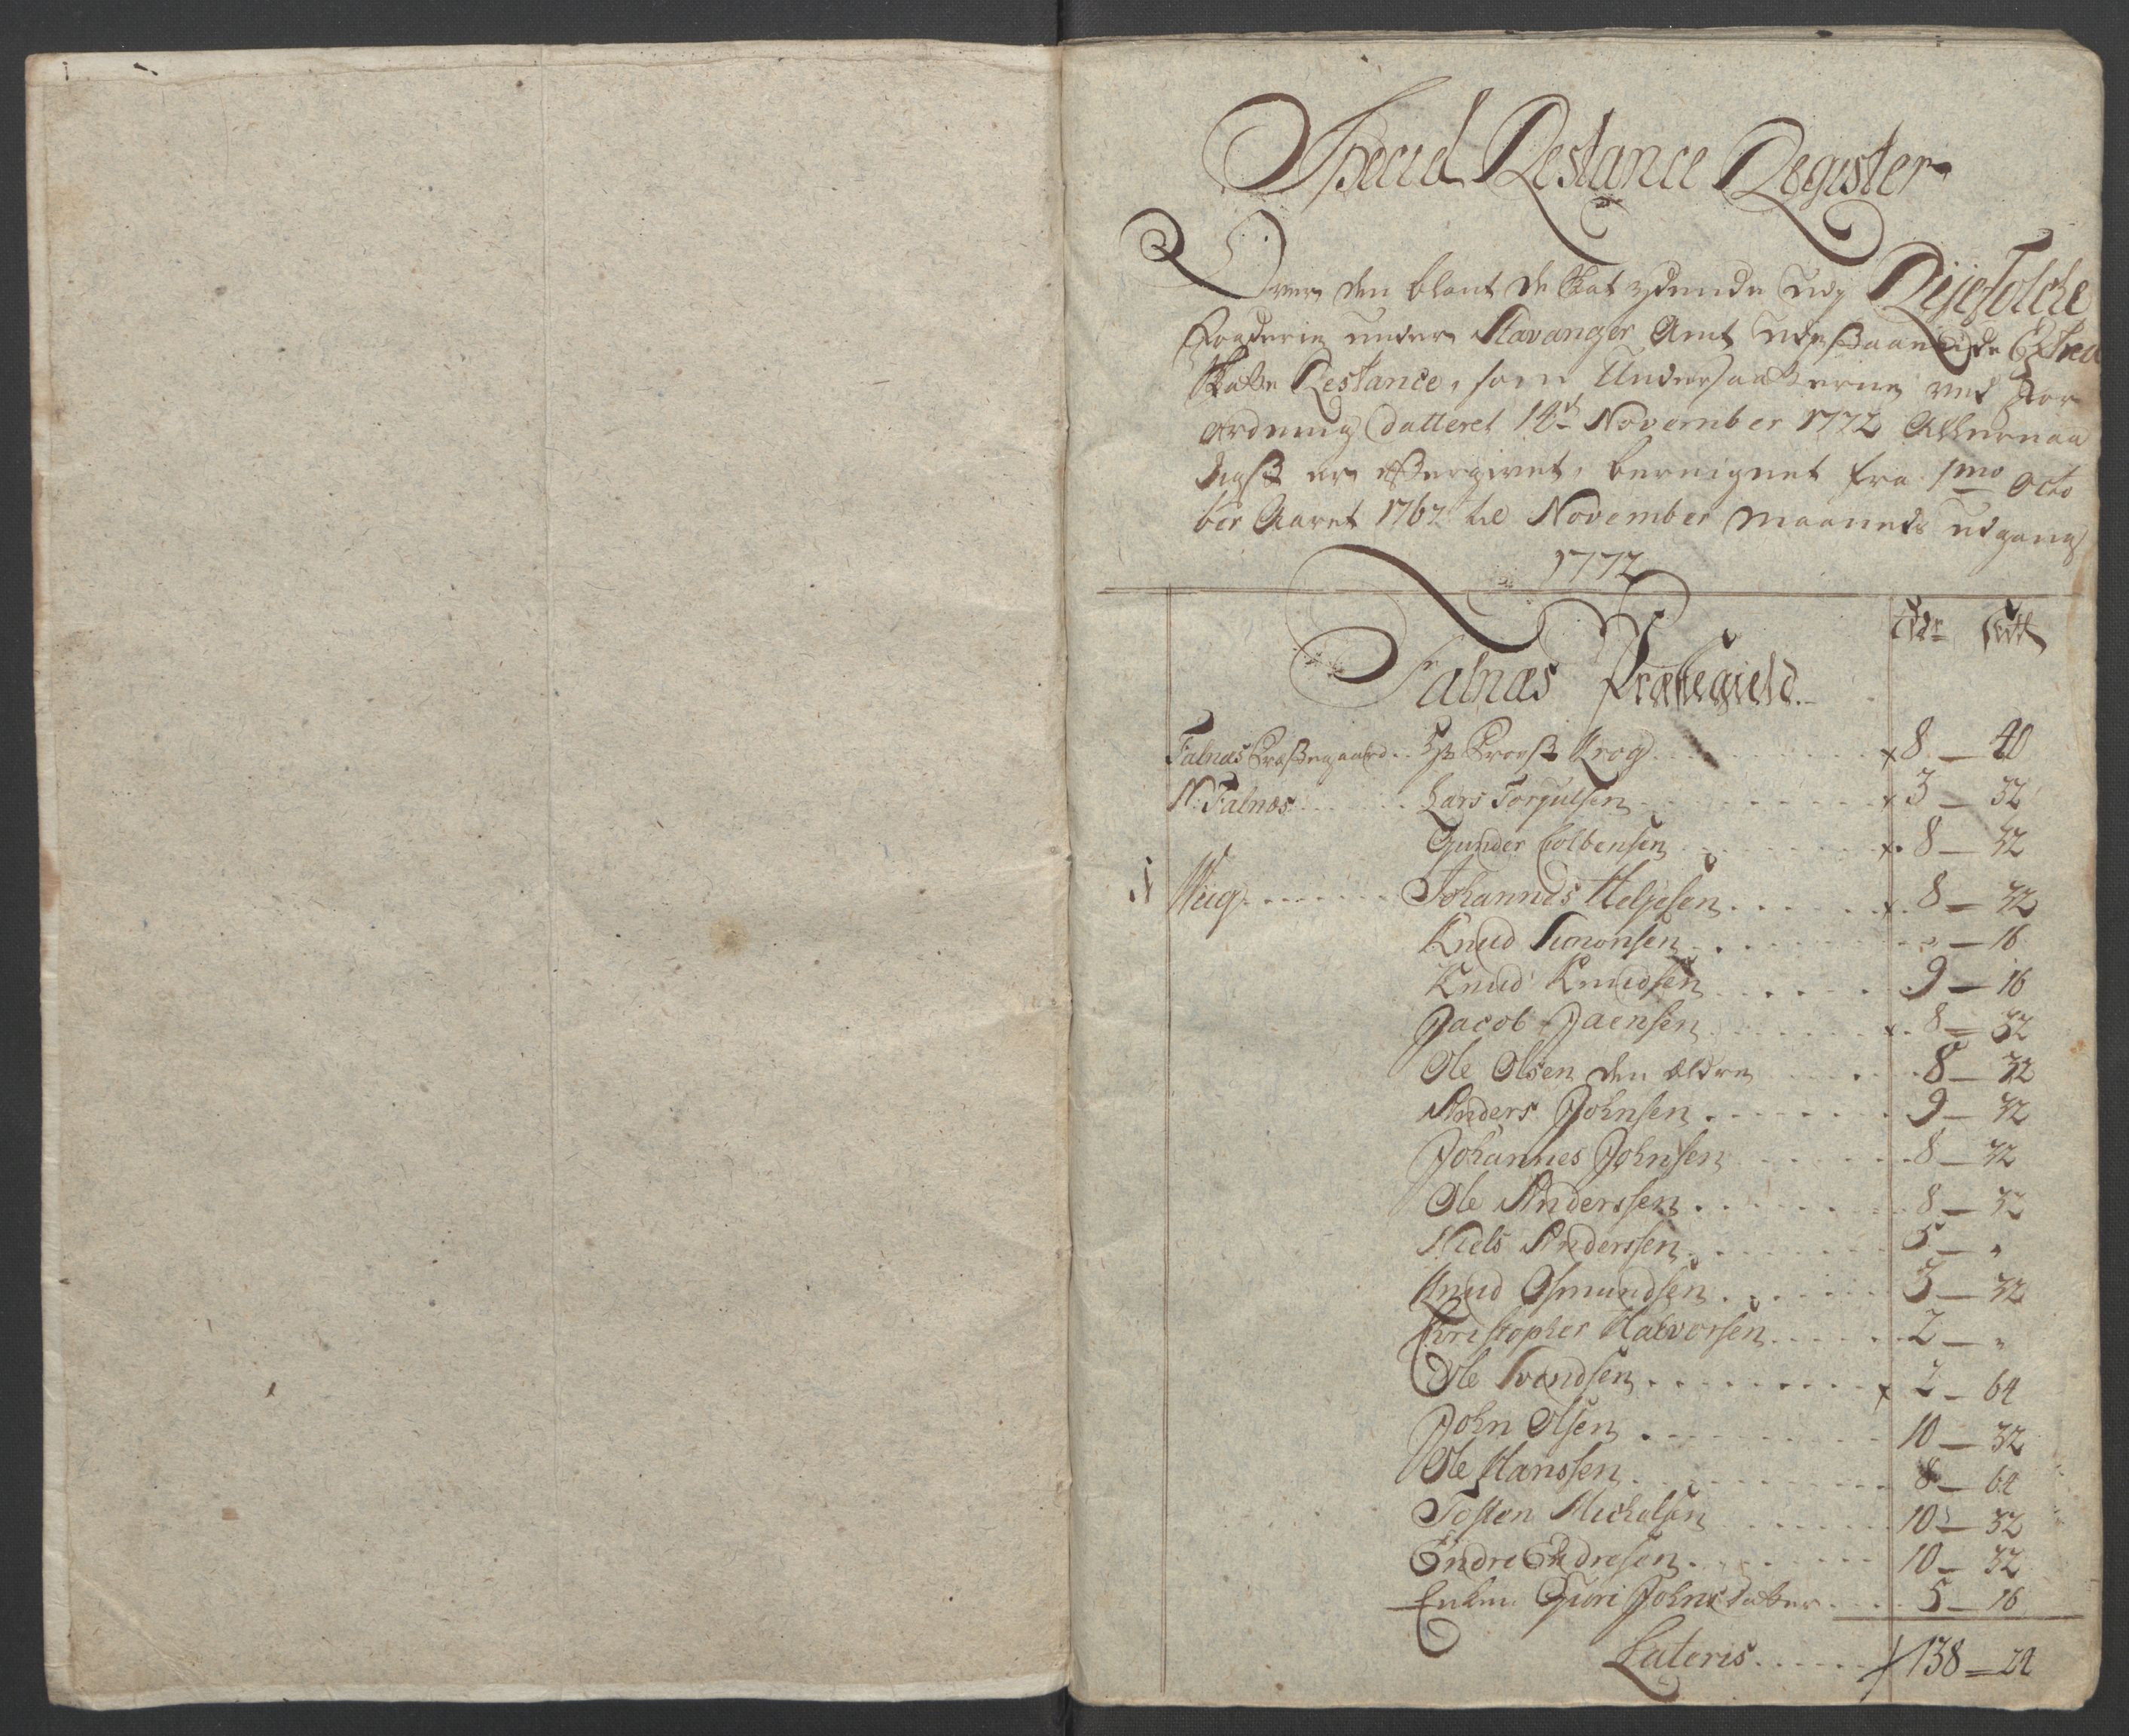 Special Restance Register
Over den blant de Skatydende udj Ryefolche
Fogderie under Stavanger Amt udestaaende Extra
Skatte Restance, som Undersaatterne ved For
ordning datteret 14de November 1772 Allernaa
digst er eftergivet, bereignet fra 1mo Octo
ber Aaret 1762 til November Maaneds udgang
1772
Rdr Sk
Falnæs Præstegield.
Falnæs Præstegaard .. Hr Provst Krog ... x 8 — 40
N: Falnæs ... Lars Torgulsen ... x 3 — 32
Gunder Colbensen ... x 8 — 32
Johannes Helgesen ... x 8 — 32
Knud Simonsen ... " — 16
Knud Knudsen ... 9 — 16
Jacob Jaensen ... x 8 — 32
Ole Olsen den ældre ... 8 — 32
Anders Johnsen ... 9 — 32
Johannes Johnsen ... 8 — 32
Ole Anderssen ... 8 — 32
Niels Anderssen ... 5 — "
Knud Osmundsen ... 3 — 32
Christopher Halvorsen ... 2 — "
Ole Svendsen ... x 2 — 64
John Olsen ... 10 — 32
Ole Hanssen ... 8 — 64
Tosten Michelsen ... 10 — 32
Endre Endresen ... 10 — 32
Enken Guri Johnsdatter ... 5 — 16
Lateris ... 138 — 24